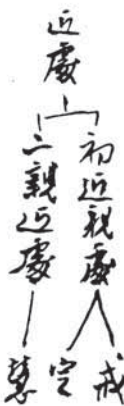 近處
初近親處
二親近處
戒
定
慧